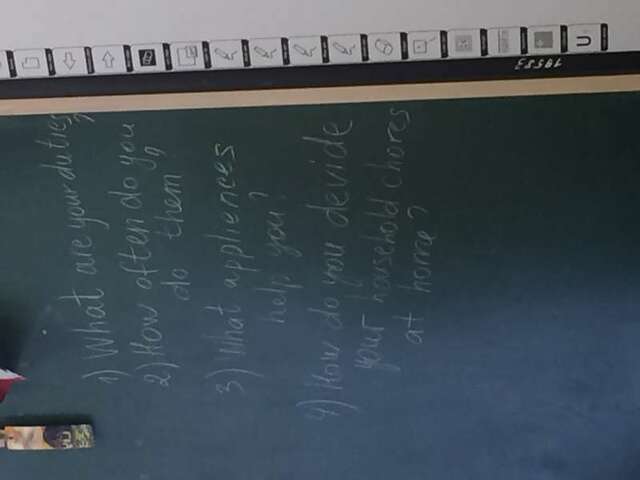 1) What are your duties?
2) How often do you
do them?
3) What appliences
help you?
4) How do you devide
your household chores
at home?
18583
U